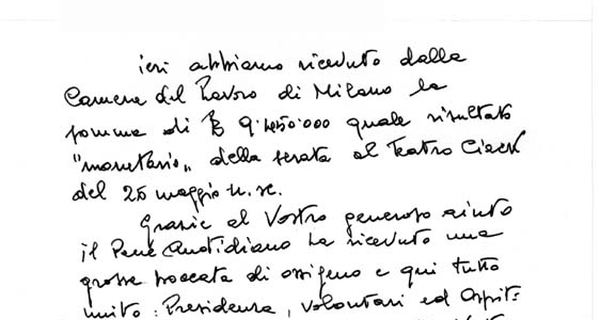 ieri abbiamo ricevuto dalla
Camera del Lavoro di Milano la
somma di £ 9.450.000 quale risultato
"monetario" della serata al Teatro Ciack
del 25 maggio u.sc.
Grazie al Vostro generoso aiuto
il Pane Quotidiano ha ricevuto una
grossa boccata di ossigeno e qui tutto
unito: Presidenza, volontari ed Ospit: